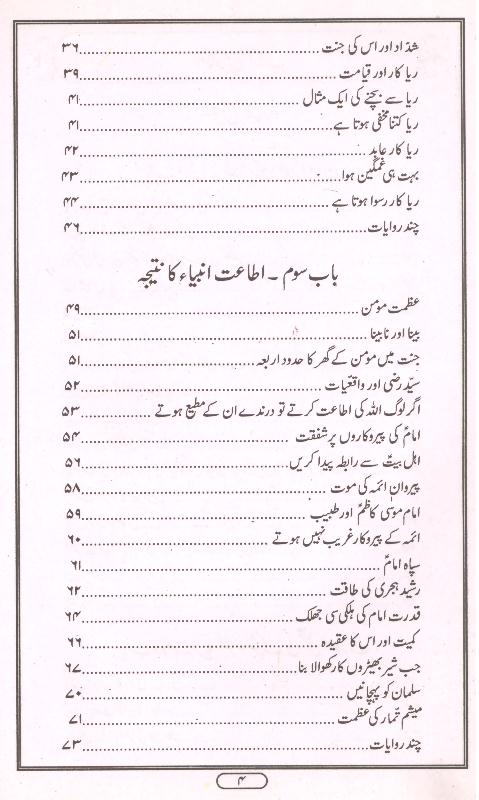 شدّاد اور اس کی جنت ........ ۳۶
ریا کار اور قیامت ........ ۳۹
ریا سے بچنے کی ایک مثال ........ ۴۱
ریا کتنا مخفی ہوتا ہے ........ ۴۱
ریا کار عابد ........ ۴۲
بہت ہی غمگین ہوا ........ ۴۳
ریا کار رسوا ہوتا ہے ........ ۴۴
چند روایات ........ ۴۶
باب سوم ۔ اطاعت انبیاء کا نتیجہ
عظمت مومن ........ ۴۹
بینا اور نابینا ........ ۵۱
جنت میں مومن کے گھر کا حدود اربعہ ........ ۵۱
سیّد رضی اور واقعیات ........ ۵۲
اگر لوگ اللہ کی اطاعت کرتے تو درندے ان کے مطیع ہوتے ........ ۵۳
امامؑ کی پیروکاروں پر شفقت ........ ۵۴
اہل بیتؑ سے رابطہ پیدا کریں ........ ۵۶
پیروان ائمہ کی موت ........ ۵۸
امام موسیٰ کاظمؑ اور طبیب ........ ۵۹
ائمہ کے پیروکار غریب نہیں ہوتے ........ ۶۰
سپاہ امامؑ ........ ۶۱
رشید ہجری کی طاقت ........ ۶۲
قدرت امام کی ہلکی سی جھلک ........ ۶۴
کمیت اور اس کا عقیدہ ........ ۶۶
جب شیر بھیڑوں کا رکھوالا بنا ........ ۶۷
سلمان کو پہچانیں ........ ۷۰
میثم تمّار کی عظمت ........ ۷۱
چند روایات ........ ۷۳
۴